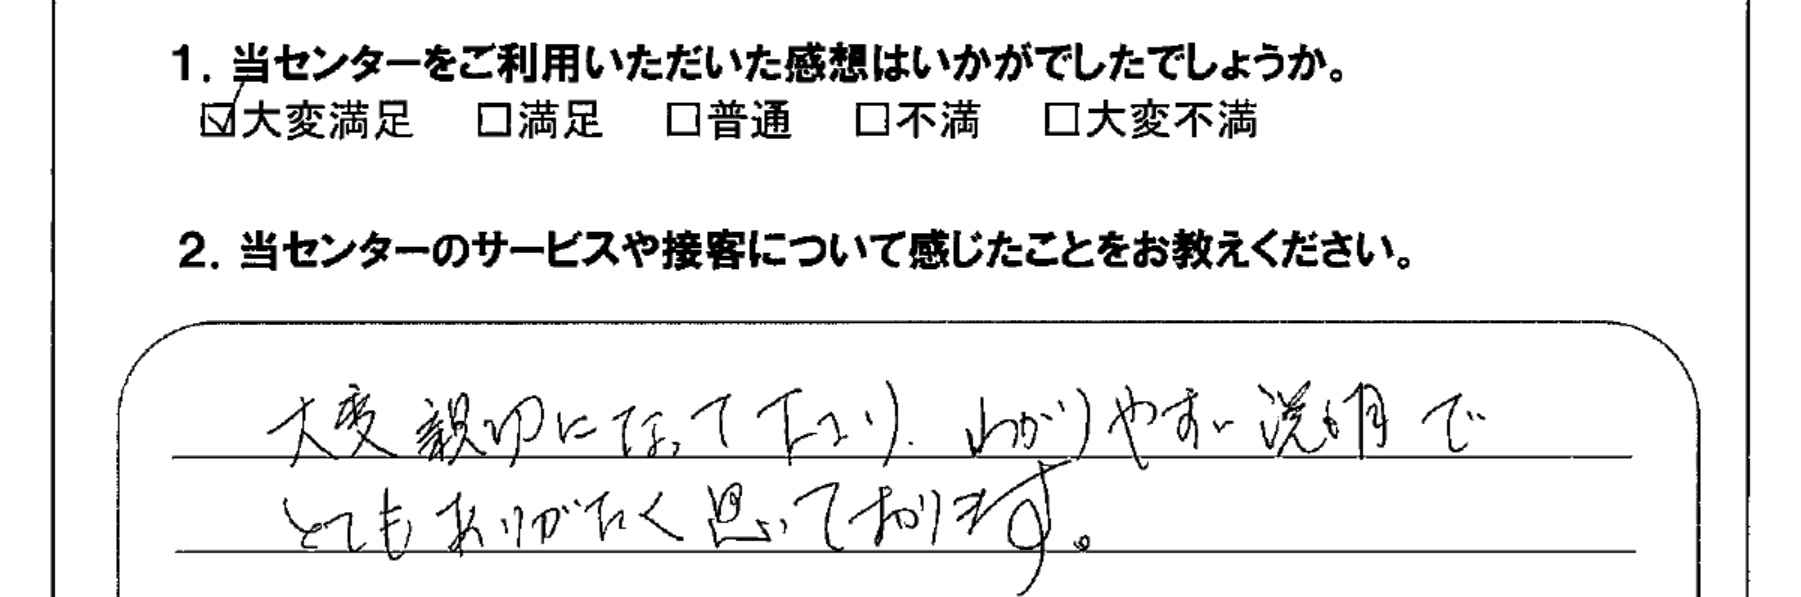 1. 当センターをご利用いただいた感想はいかがでしたでしょうか。
☑大変満足 □満足 □普通 □不満 □大変不満
2. 当センターのサービスや接客について感じたことをお教えください。
大変親切になって下さり、わかりやすい説明で
とてもありがたく思っております。